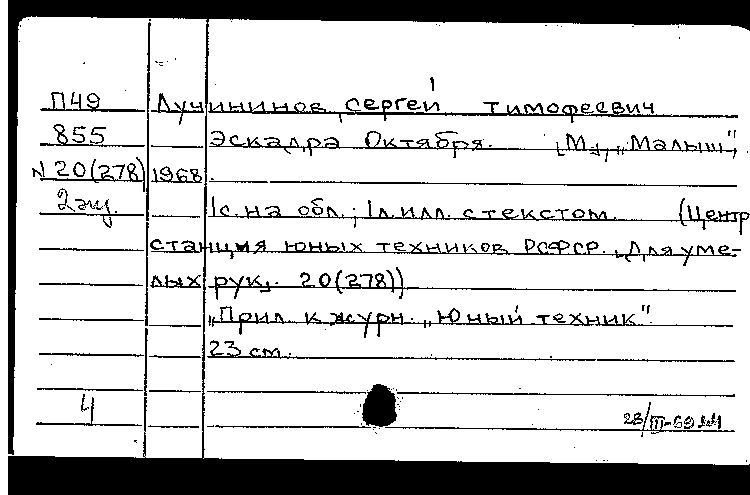 П49 Лучининов, Сергей Тимофеевич
855 Эскадра Октября. [М.], „Малыш",
N 20(278) 1968.
2 экз. 1 с. на обл.; 1 л. илл. с текстом. (Центр
станция юных техников РСФСР. „Для уме-
лых рук". 20(278))
„Прил. к журн. „Юный техник".
23 см.
4